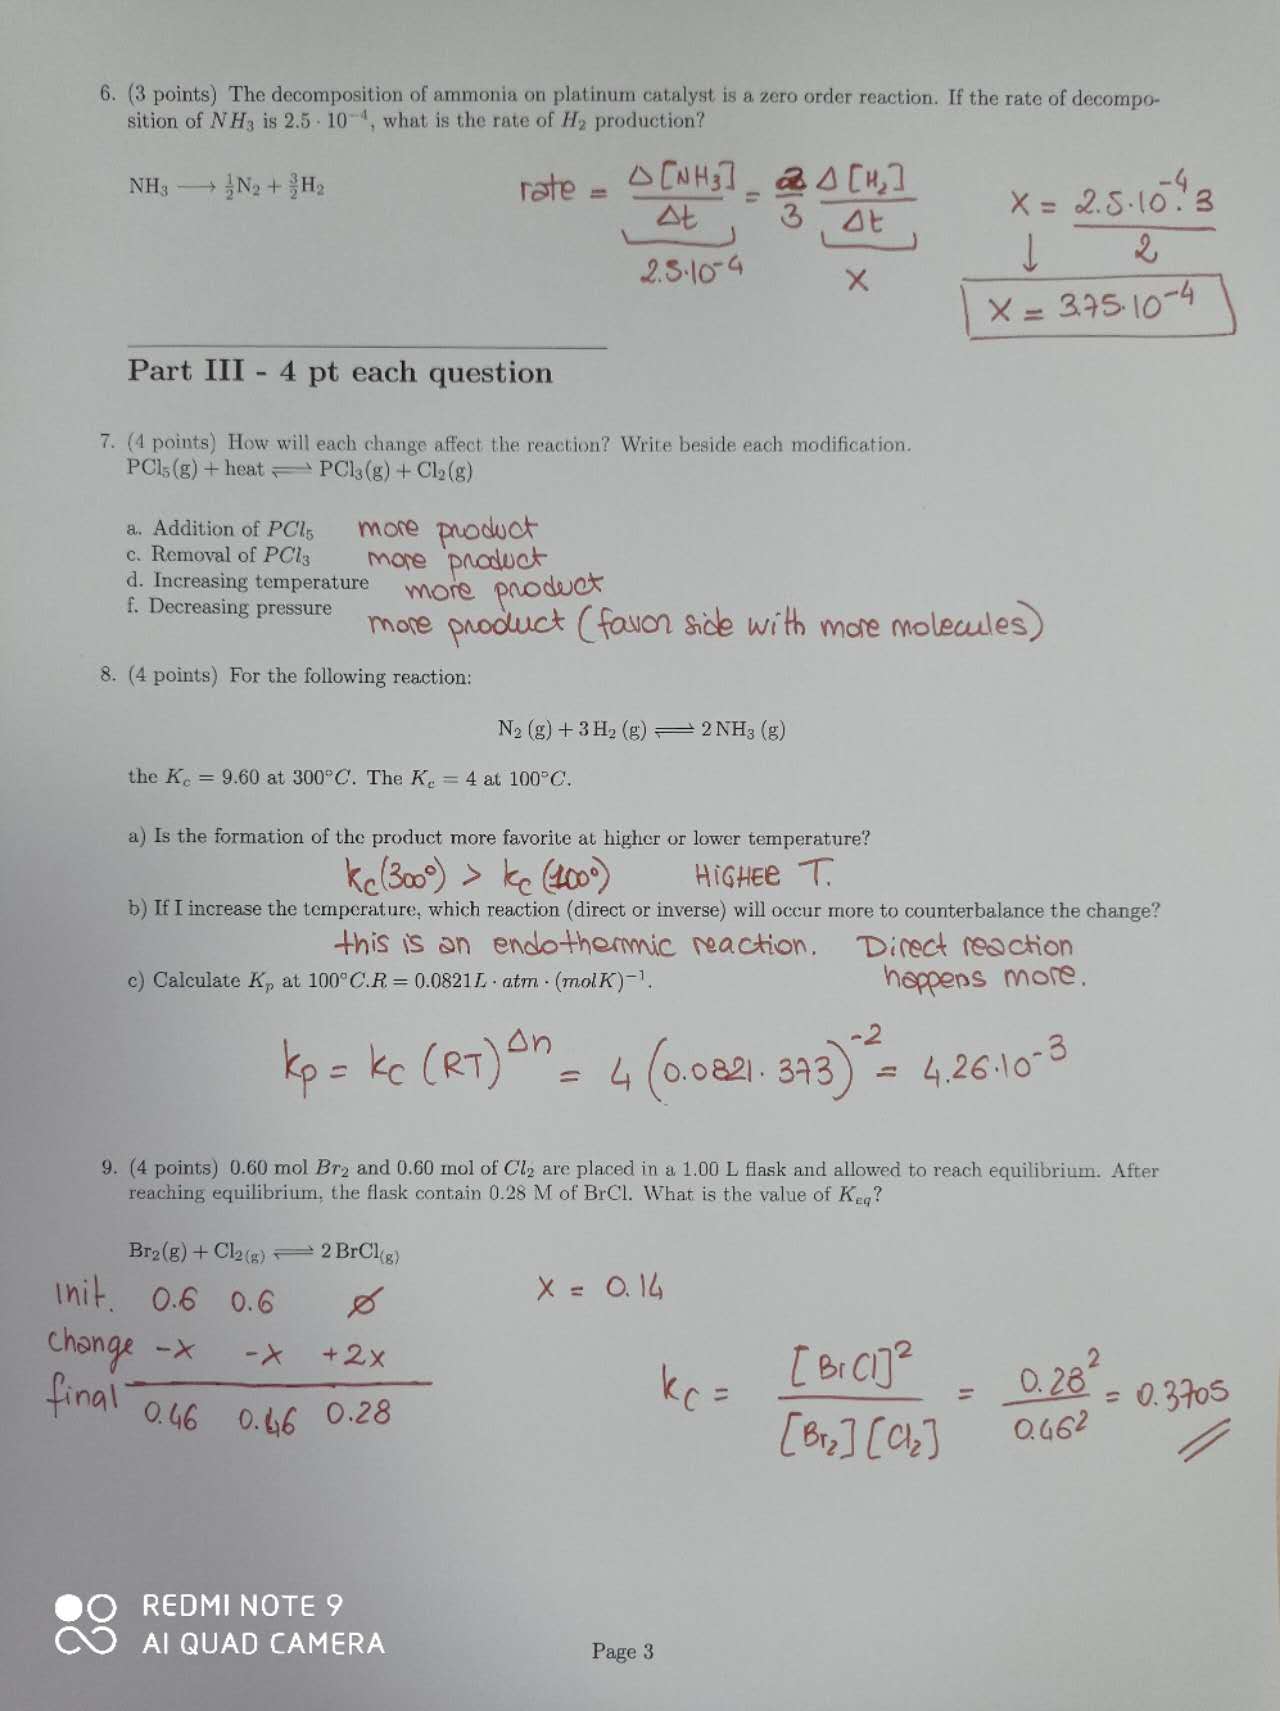 6. (3 points) The decomposition of ammonia on platinum catalyst is a zero order reaction. If the rate of decompo-
sition of NH₃ is 2.5 · 10⁻⁴, what is the rate of H₂ production?
NH₃ ⟶ ½N₂ + 3/2 H₂
rate = Δ[NH₃]/Δt = 2/3 Δ[H₂]/Δt
2.5·10⁻⁴ x
x = 2.5·10⁻⁴·3 / 2
↓
x = 3.75·10⁻⁴
Part III - 4 pt each question
7. (4 points) How will each change affect the reaction? Write beside each modification.
PCl₅(g) + heat ⇌ PCl₃(g) + Cl₂(g)
a. Addition of PCl₅ more product
c. Removal of PCl₃ more product
d. Increasing temperature more product
f. Decreasing pressure more product (favor side with more molecules)
8. (4 points) For the following reaction:
N₂ (g) + 3 H₂ (g) ⇌ 2 NH₃ (g)
the K_c = 9.60 at 300°C. The K_c = 4 at 100°C.
a) Is the formation of the product more favorite at higher or lower temperature?
kc(300°) > kc(100°) HIGHER T.
b) If I increase the temperature, which reaction (direct or inverse) will occur more to counterbalance the change?
this is an endothermic reaction. Direct reaction
happens more.
c) Calculate K_p at 100°C.R = 0.0821L · atm · (molK)⁻¹.
kp = kc (RT)^Δn = 4 (0.0821 · 373)⁻² = 4.26·10⁻³
9. (4 points) 0.60 mol Br₂ and 0.60 mol of Cl₂ are placed in a 1.00 L flask and allowed to reach equilibrium. After
reaching equilibrium, the flask contain 0.28 M of BrCl. What is the value of K_eq?
Br₂(g) + Cl₂(g) ⇌ 2 BrCl(g)
init. 0.6 0.6 ∅
change -x -x +2x
final 0.46 0.46 0.28
x = 0.14
kc = [BrCl]² / [Br₂][Cl₂] = 0.28² / 0.46² = 0.3705
REDMI NOTE 9
AI QUAD CAMERA
Page 3